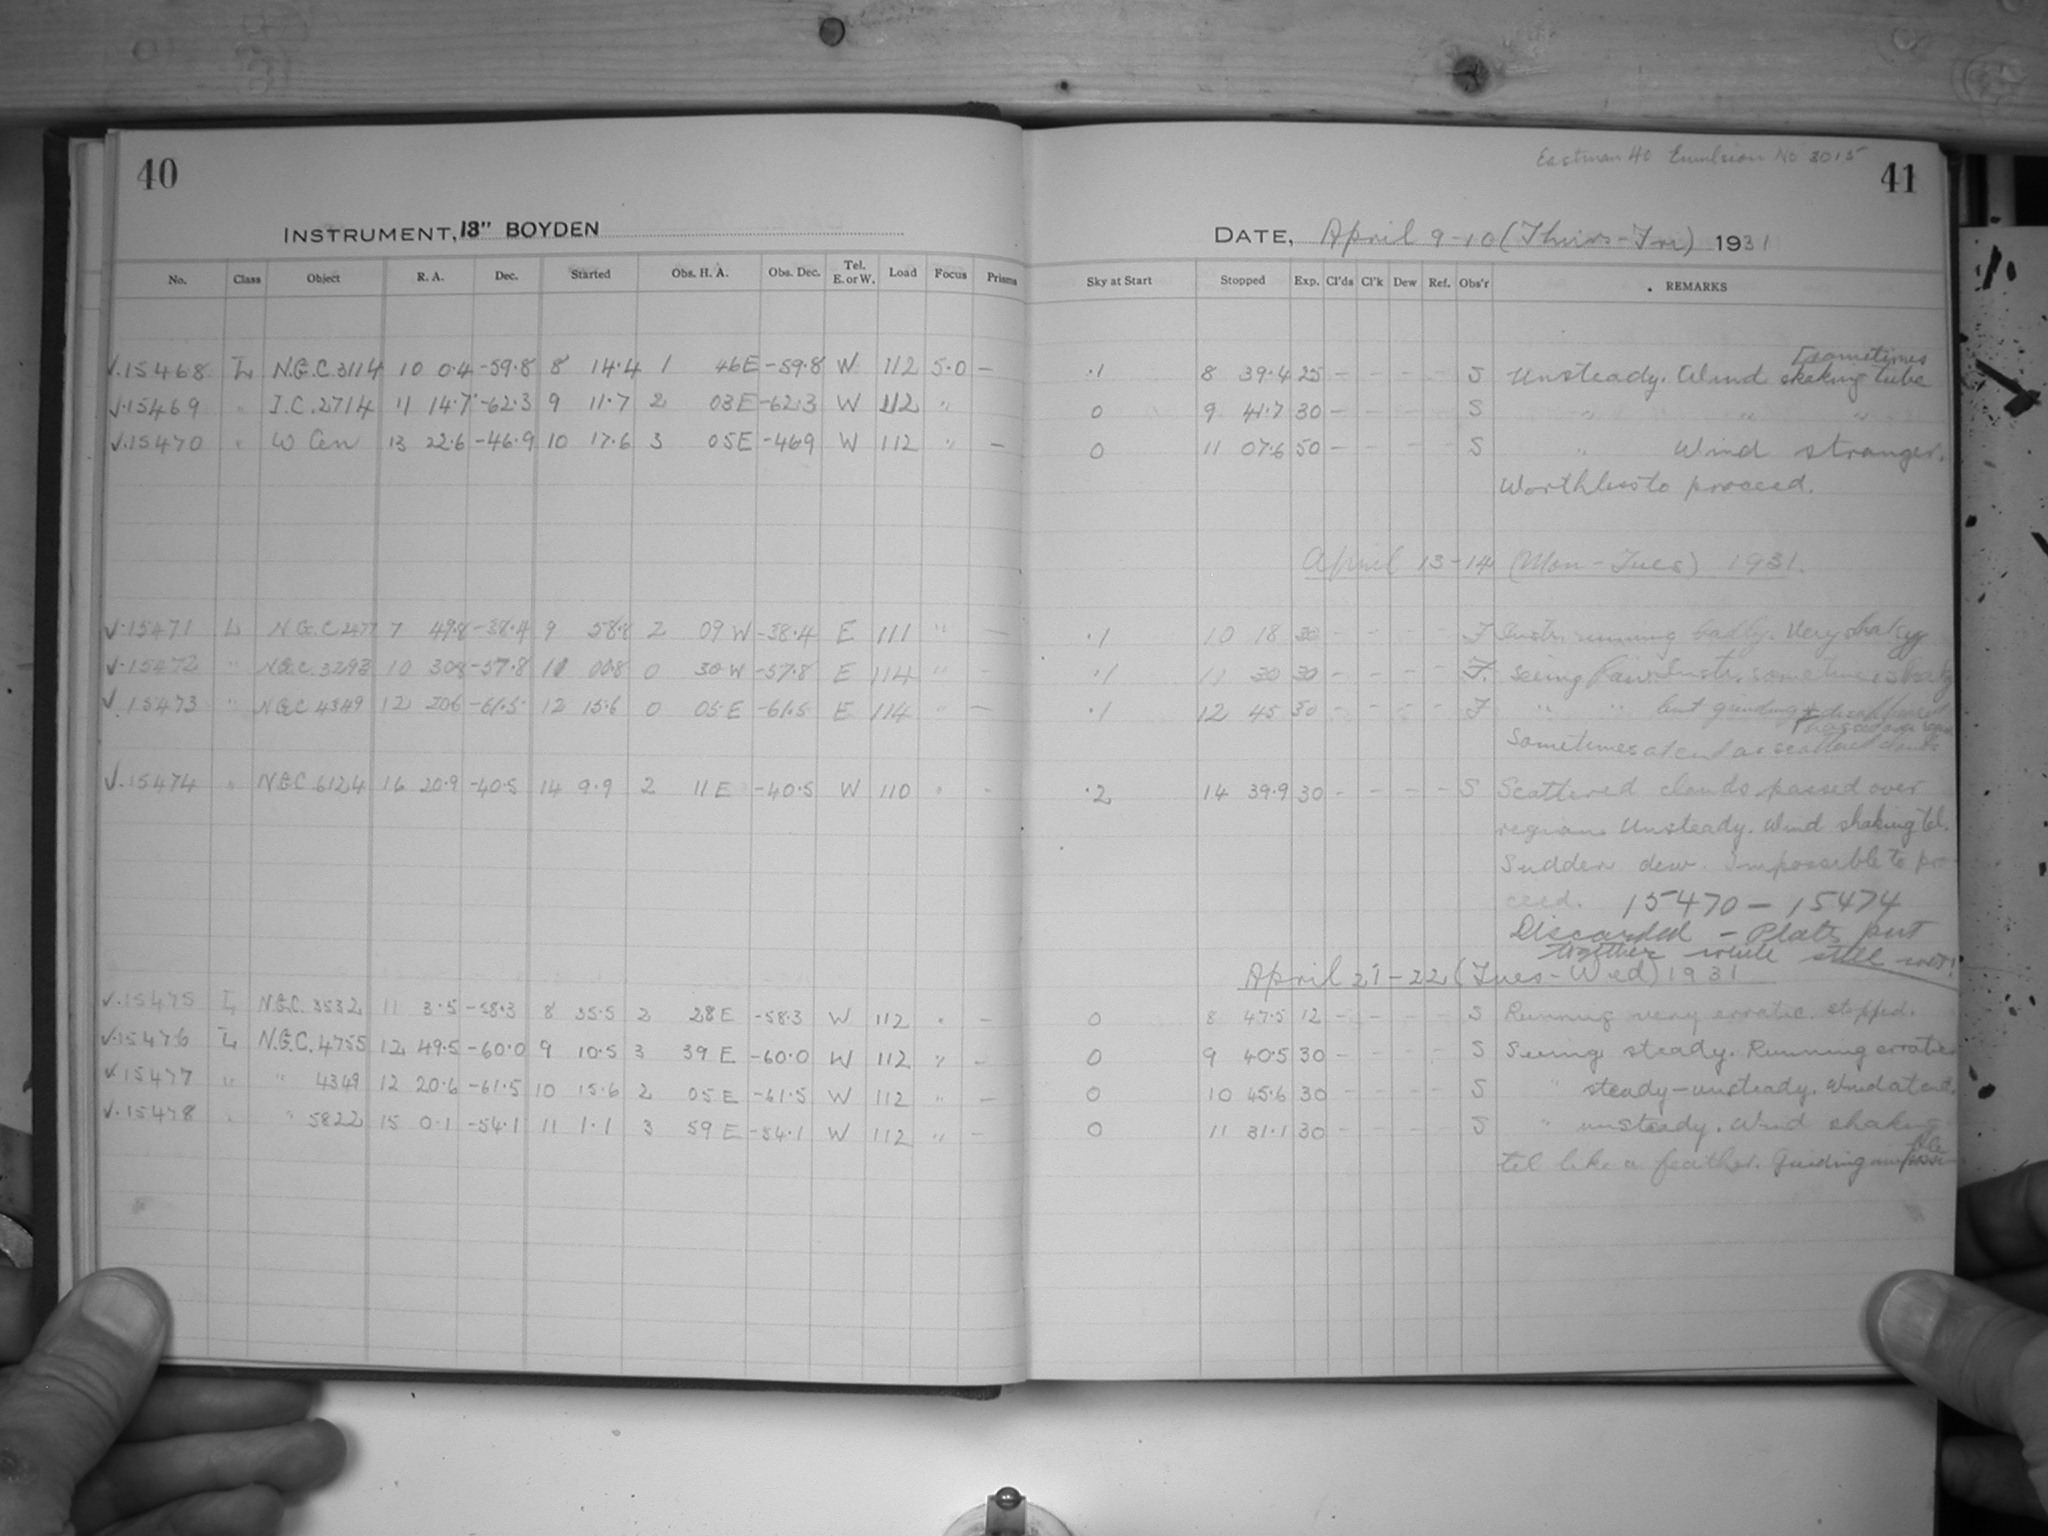 40
INSTRUMENT, 13" BOYDEN
No. Class Object R. A. Dec. Started Obs. H. A. Obs. Dec. Tel. E. or W. Load Focus Prisms
√.15468 L N.G.C.3114 10 0.4 -59.8 8 14.4 1 46E -59.8 W 112 5.0 -
√.15469 " I.C.2714 11 14.7 -62.3 9 11.7 2 03E -62.3 W 112 "
√.15470 " W Cen 13 22.6 -46.9 10 17.6 3 05E -469 W 112 " -
√.15471 L N.G.C 2477 7 49.8 -38.4 9 58.8 2 09 W -38.4 E 111 " -
√.15472 " N.G.C.3293 10 308 -57.8 11 00.8 0 30 W -57.8 E 114 " -
√.15473 " NGC 4349 12 206 -61.5 12 15.6 0 05 E -61.5 E 114 " -
√.15474 " N.G.C 6124 16 20.9 -40.5 14 9.9 2 11 E -40.5 W 110 " -
√.15475 L N.G.C. 3532 11 3.5 -58.3 8 35.5 2 28 E -58.3 W 112 " -
√.15476 L N.G.C. 4755 12 49.5 -60.0 9 10.5 3 39 E -60.0 W 112 " -
√.15477 " " 4349 12 20.6 -61.5 10 15.6 2 05 E -61.5 W 112 " -
√.15478 " " 5822 15 0.1 -54.1 11 1.1 3 59 E -54.1 W 112 " -
Eastman 40 Emulsion No 3015
41
DATE, April 9-10 (Thurs-Fri) 1931
Sky at Start Stopped Exp. Cl'ds Cl'k Dew Ref. Obs'r REMARKS
.1 8 39.4 25 - - - - S Unsteady. Wind sometimes shaking tube
0 9 41.7 30 - - - - S " " "
0 11 07.6 50 - - - - S " Wind stronger.
Worthless to proceed.
April 13-14 (Mon-Tues) 1931.
.1 10 18 30 - - - - F Instr. running badly. Very shaky
.1 11 30 30 - - - - F. Seeing fair. Instr. sometimes shaky
.1 12 45 30 - - - - F " " but guiding *
Sometimes at end as scattered clouds
.2 14 39.9 30 - - - - S Scattered clouds passed over
region. Unsteady. Wind shaking tel.
Sudden dew. Impossible to pro-
ceed. 15470 - 15474
Discarded - Plates put
together while still wet!
April 21-22 (Tues-Wed) 1931
0 8 47.5 12 - - - - S Running very erratic. stopped.
0 9 40.5 30 - - - - S Seeing steady. Running erratic
0 10 45.6 30 - - - - S " steady-unsteady. Wind at end.
0 11 31.1 30 - - - - S " unsteady. Wind shaking
tel like a feather. Guiding impossible